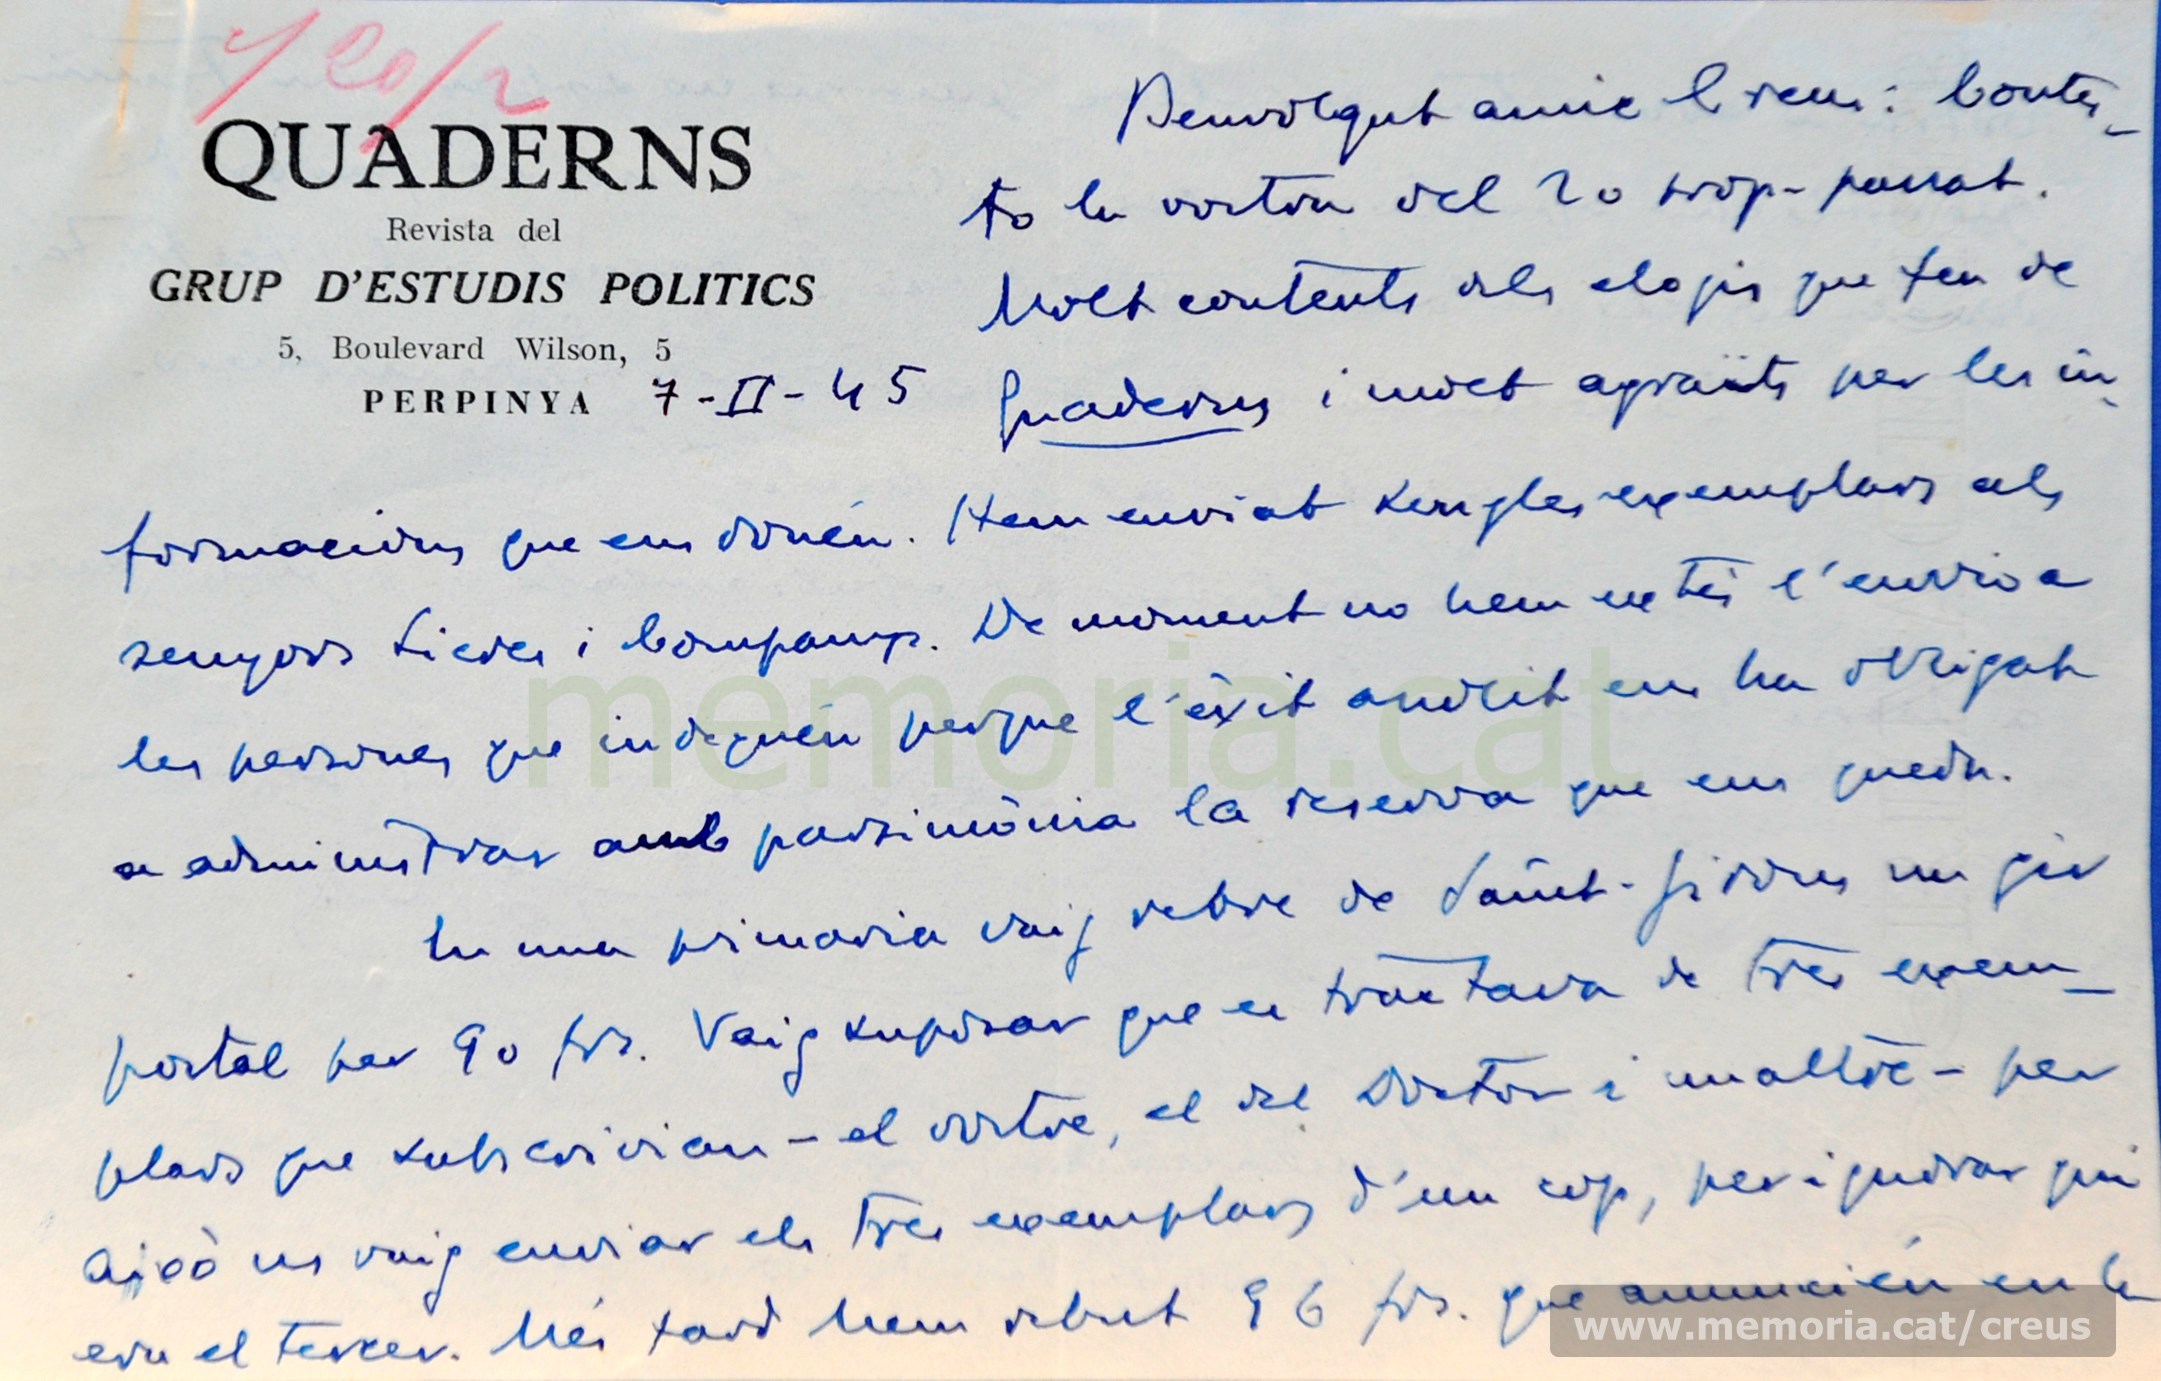 20/2
QUADERNS
Revista del
GRUP D'ESTUDIS POLITICS
5, Boulevard Wilson, 5
PERPINYA 7-II-45
Benvolgut amic Creus: Contes-
to la vostra del 20 prop-passat.
Molt contents dels elogis que feu de
Quaderns i molt agraïts per les in-
formacions que ens doneu. Hem enviat sengles exemplars als
senyors Sieres i Companys. De moment no hem extès l'envio a
les persones que indiquéu perque l'èxit andlit ens ha obligat
a administrar amb parsimònia la reserva que ens queda.
En una primaria vaig rebre de Saint-Girons un gir
postal per 90 frs. Vaig suposar que es tractava de tres exem-
plars que subscrivieu - el vostre, el del Doctor i un altre - per
això us vaig enviar els tres exemplars d'un cop, per ignorar qui
era el tercer. Més tard hem rebut 96 frs. que anunciéu en la
memoria.cat
www.memoria.cat/creus